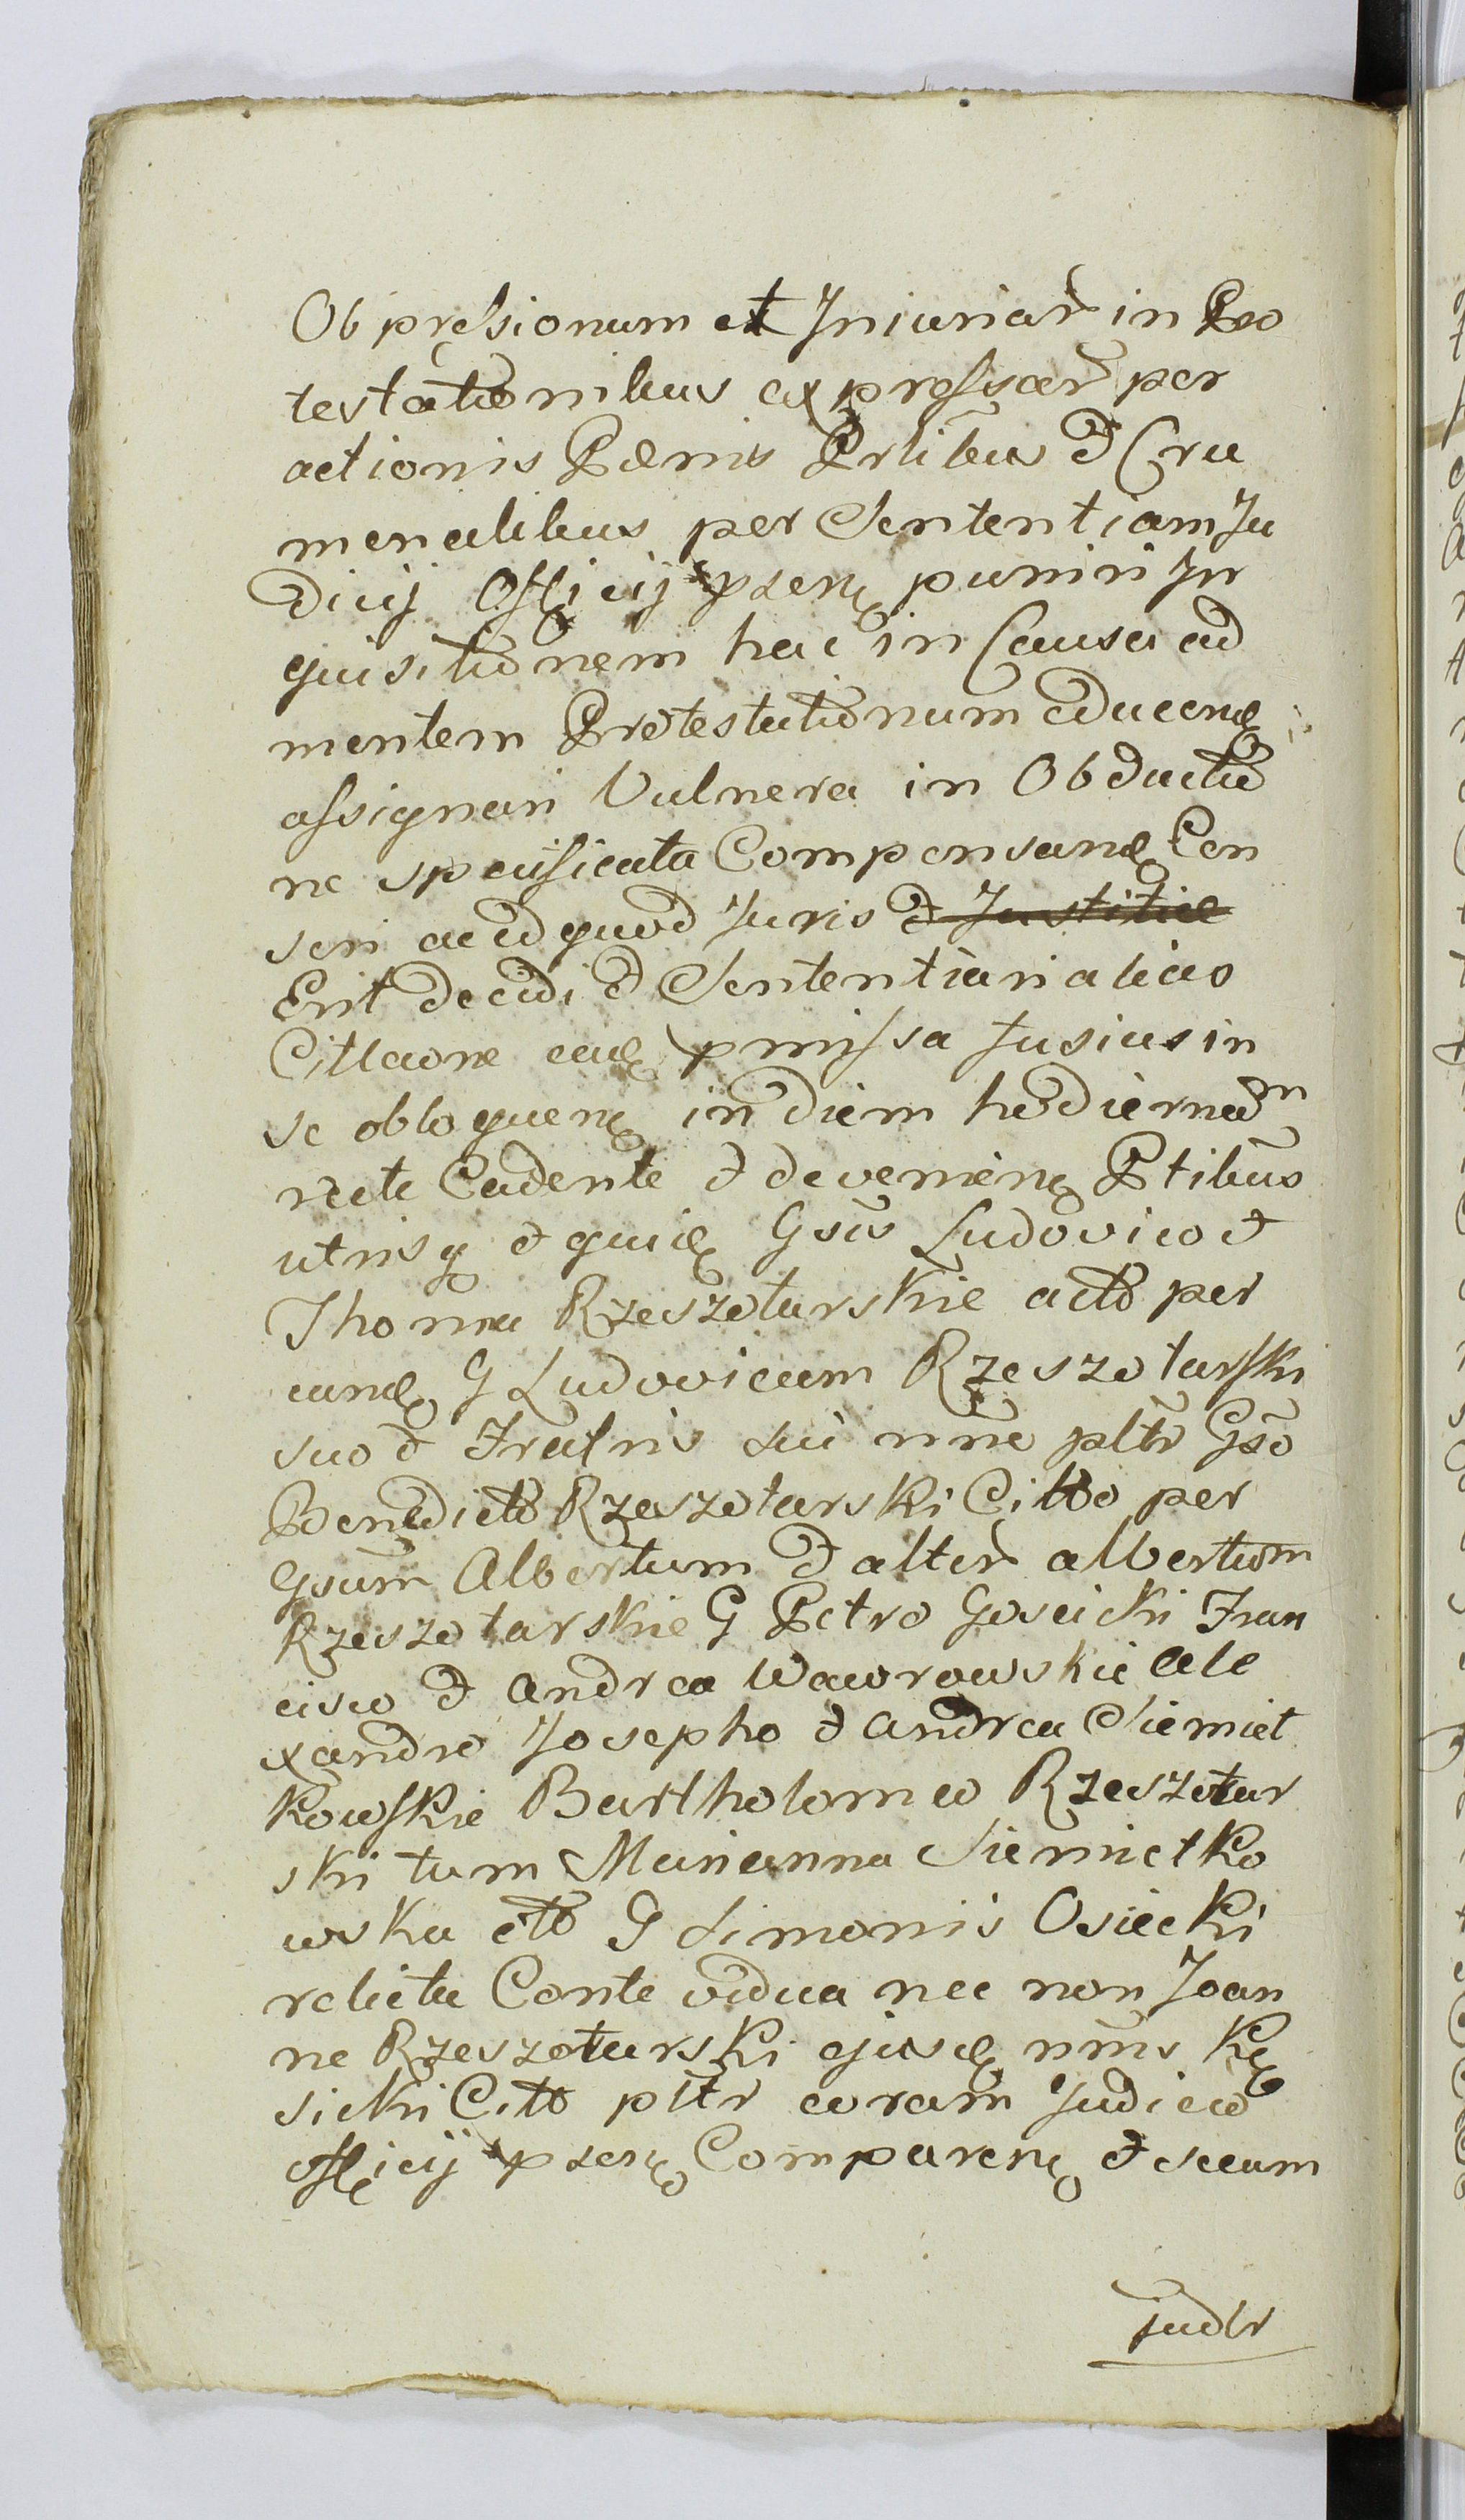 Obpressionum et Iniuriar in Pro
testationibus expressar per
actionis Pænis Prlibus et Cru
menalibus per Sententiam Ju
dicij Officij psen puniri In
quisitionem hac in Causa ad
mentem Protestationum educend
assignari Vulnera in Obductio
ne specificata Compensand Cen
seri ac id quod Juris et Justitiæ
Erit decidi et Sententiari alias
Citlaone ead pmissa fusius in
se obloquen in diem hodiernam
recte Cadente et devenien Ptibus
utrisq et quid Gsis Ludovico et
Thoma Rzeszotarskie actō per
eund G Ludovicum Rzeszotarski
suo et Fratris sui nne pltr Gsō
Benedictō Rzeszotarski Citto per
Gsum Albertum et alter Albertum
Rzeszotarskie G Petro Gosciki Fran
cisco et Andrea Waworowskie Ale
xandro Josepho et Andrea Siemiet
kowskie Bartholomeo Rzeszotar
ski tum Marianna Siemietko
wska otō G Simonis Osiecki
relicta Conte vidua nec non Joan
ne Rzeszotarski ejusd nms
Cittō pltr coram Judicio
officij psen Comparen et secum
judlr